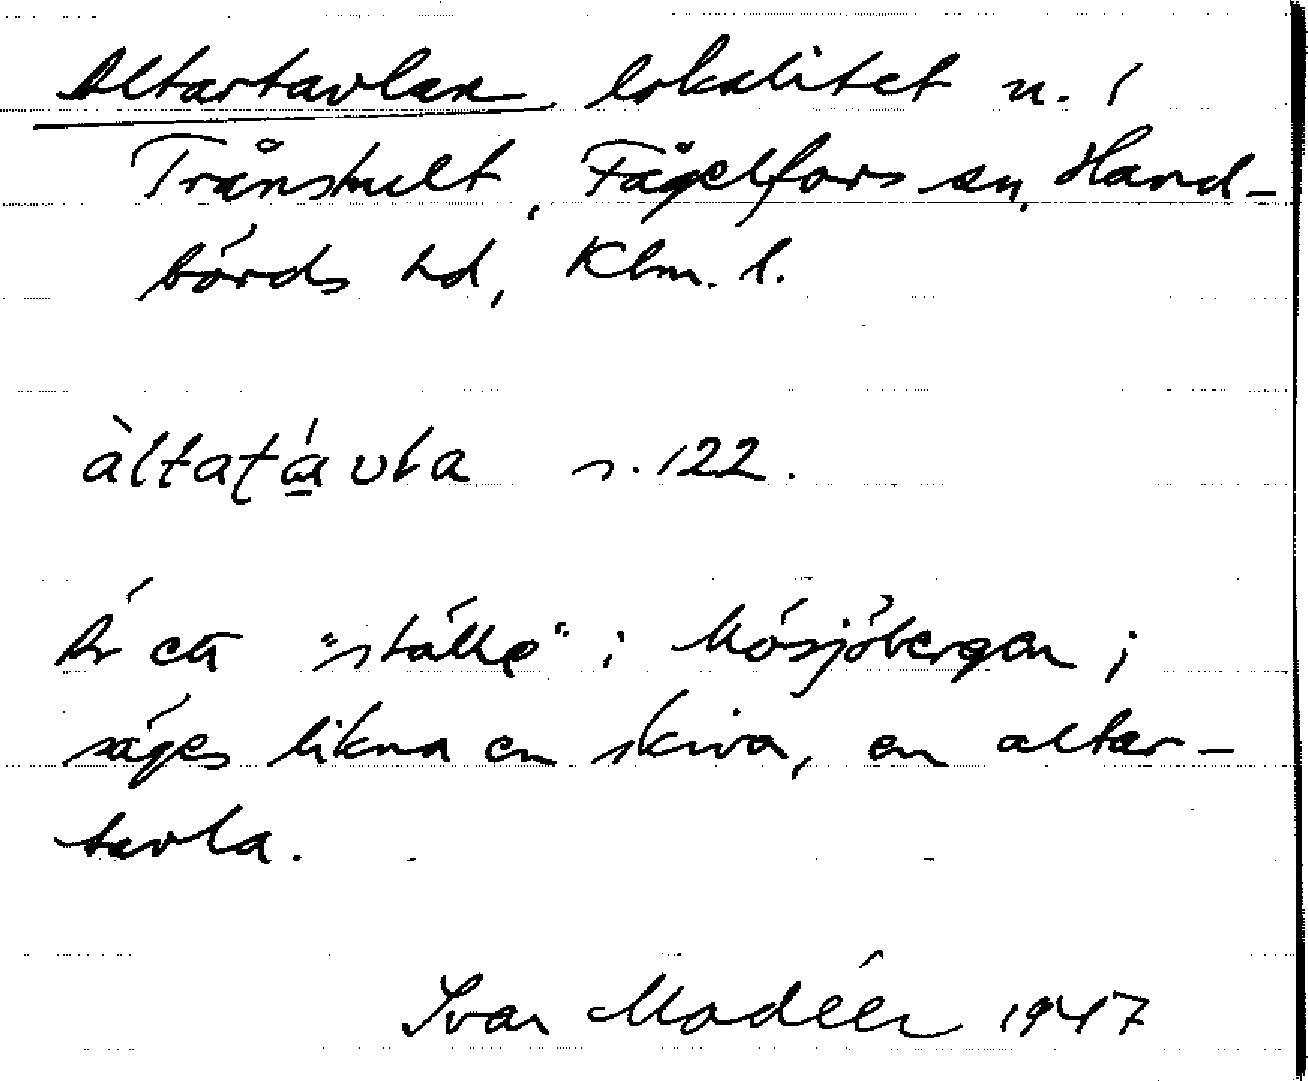 Altartavlan, lokalitet n. i
Trånshult, Fågelfors sn, Hand-
börds hd, Klm. l.
àltatá̱vla s. 122.
Är ett "ställe" i Mösjöbergen;
säges likna en skiva, en altar-
tavla.
Ivar Modéer 1947